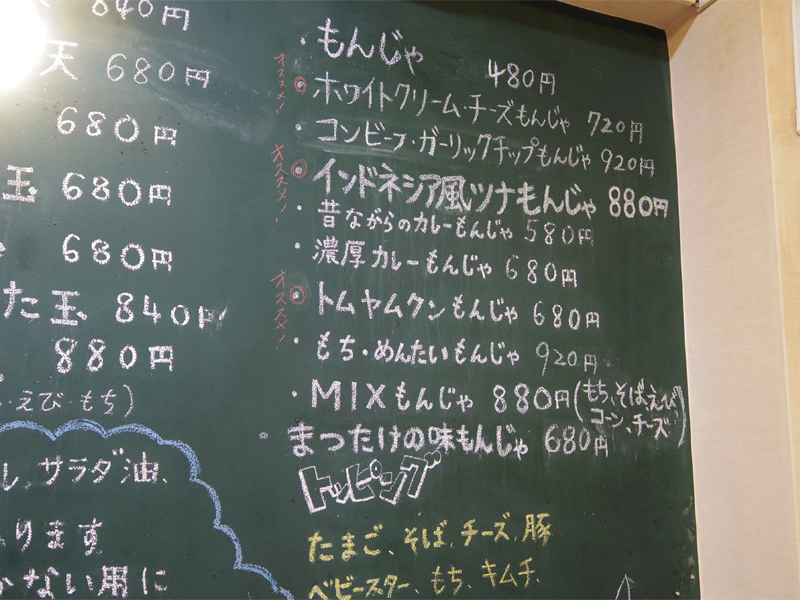 840円
天 680円
680円
玉 680円
680円
た玉 840円
880円
・えび・もち)
サラダ油、
ります
ない用に
・もんじゃ 480円
オススメ! ホワイトクリーム・チーズもんじゃ 720円
・コンビーフ・ガーリックチップもんじゃ 920円
オススメ! インドネシア風ツナもんじゃ 880円
・昔ながらのカレーもんじゃ 580円
・濃厚カレーもんじゃ 680円
オススメ! トムヤムクンもんじゃ 680円
・もち・めんたいもんじゃ 920円
・MIXもんじゃ 880円(もち、そば、えび、
コーン、チーズ)
まったけの味もんじゃ 680円
トッピング
たまご、そば、チーズ、豚
ベビースター、もち、キムチ、